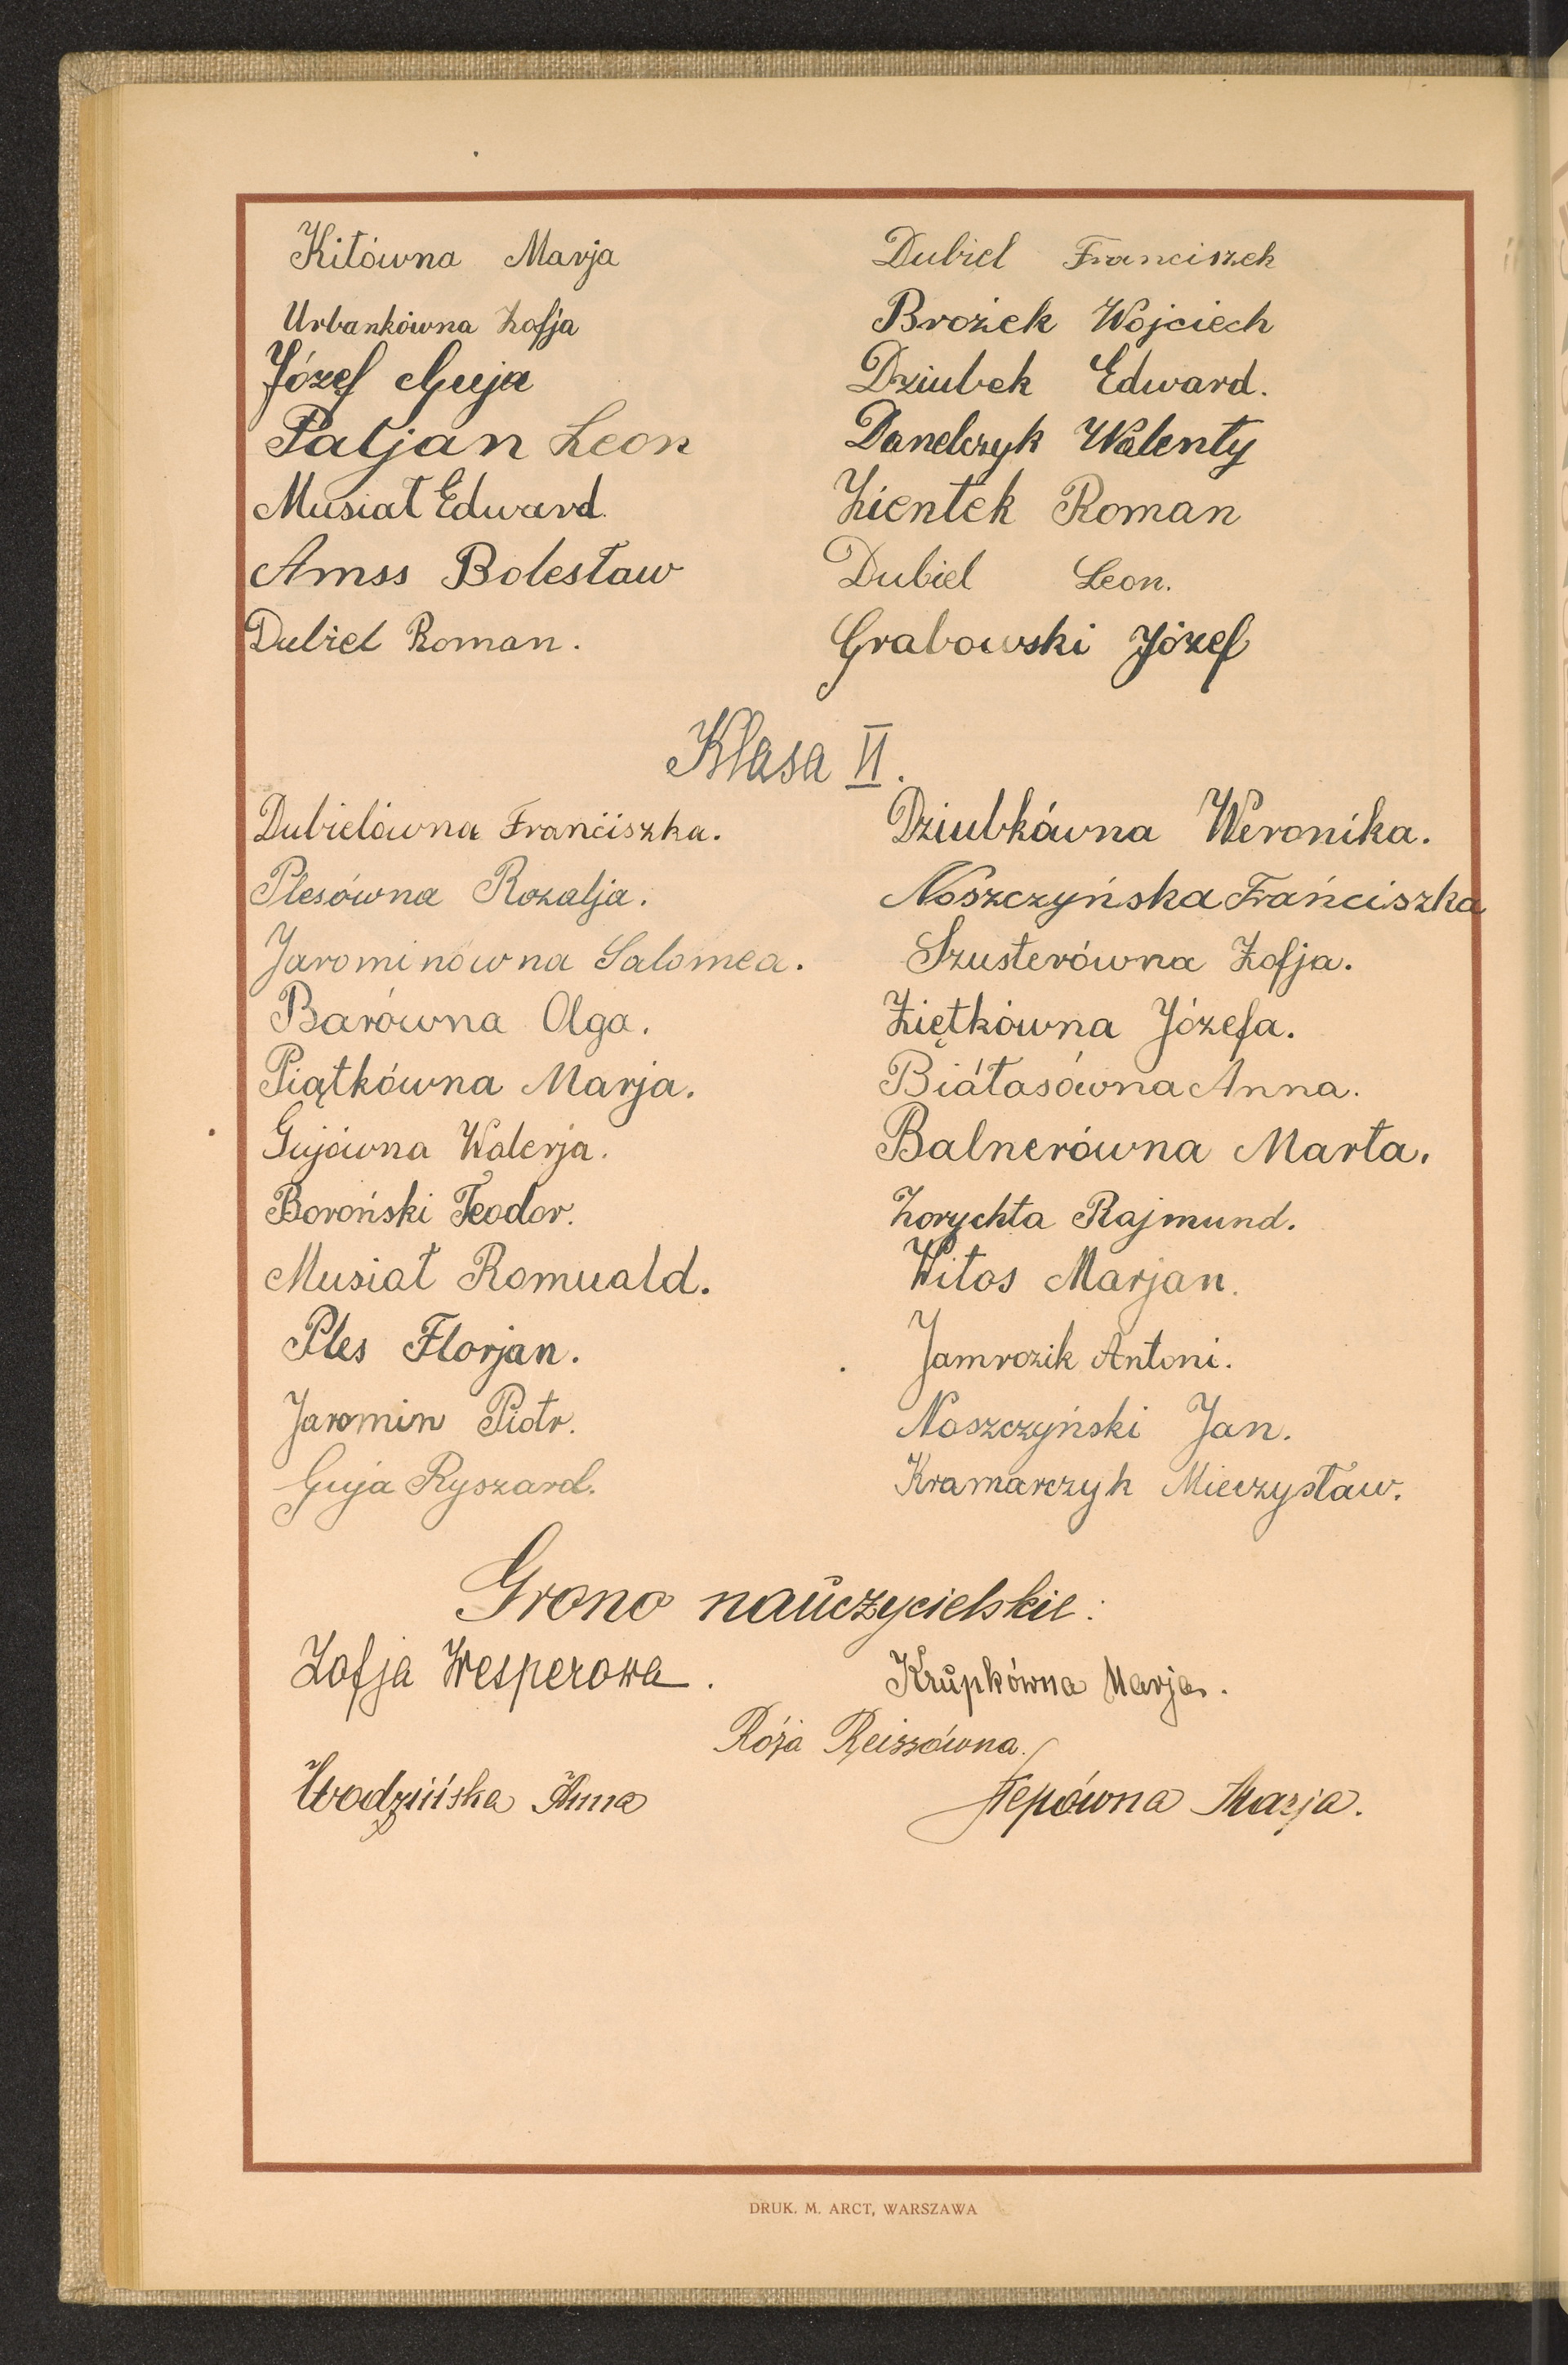 Kitówna Marja
Dubiel Franciszek
Urbankówna Zofja
Brożek Wojciech
Józef Guja
Dziubek Edward.
Patjan Leon
Danelczyk Walenty
Musiał Edward
Zientek Roman
Amss Bolesław
Dubiel Leon.
Dubiel Roman.
Grabowski Józef
Klasa VI.
Dubielówna Franciszka.
Dziubkówna Weronika.
Plesówna Rozalja.
Noszczyńska Franciszka
Jarominówna Salomea.
Szusterówna Zofja.
Barówna Olga.
Ziętkówna Józefa.
Piątkówna Marja.
Białasówna Anna.
Gujówna Walerja.
Balnerówna Marta.
Boroński Teodor.
Zorychta Rajmund.
Musiał Romuald.
Witos Marjan.
Ples Florjan.
Jamrozik Antoni.
Jaromin Piotr.
Noszczyński Jan.
Guja Ryszard.
Kramarczyk Mieczysław.
Grono nauczycielskie:
Zofja Wesperowa.
Krupkówna Marja.
Róża Reissówna.
Wodzińska Anna
Stepówna Marja.
DRUK. M. ARCT, WARSZAWA